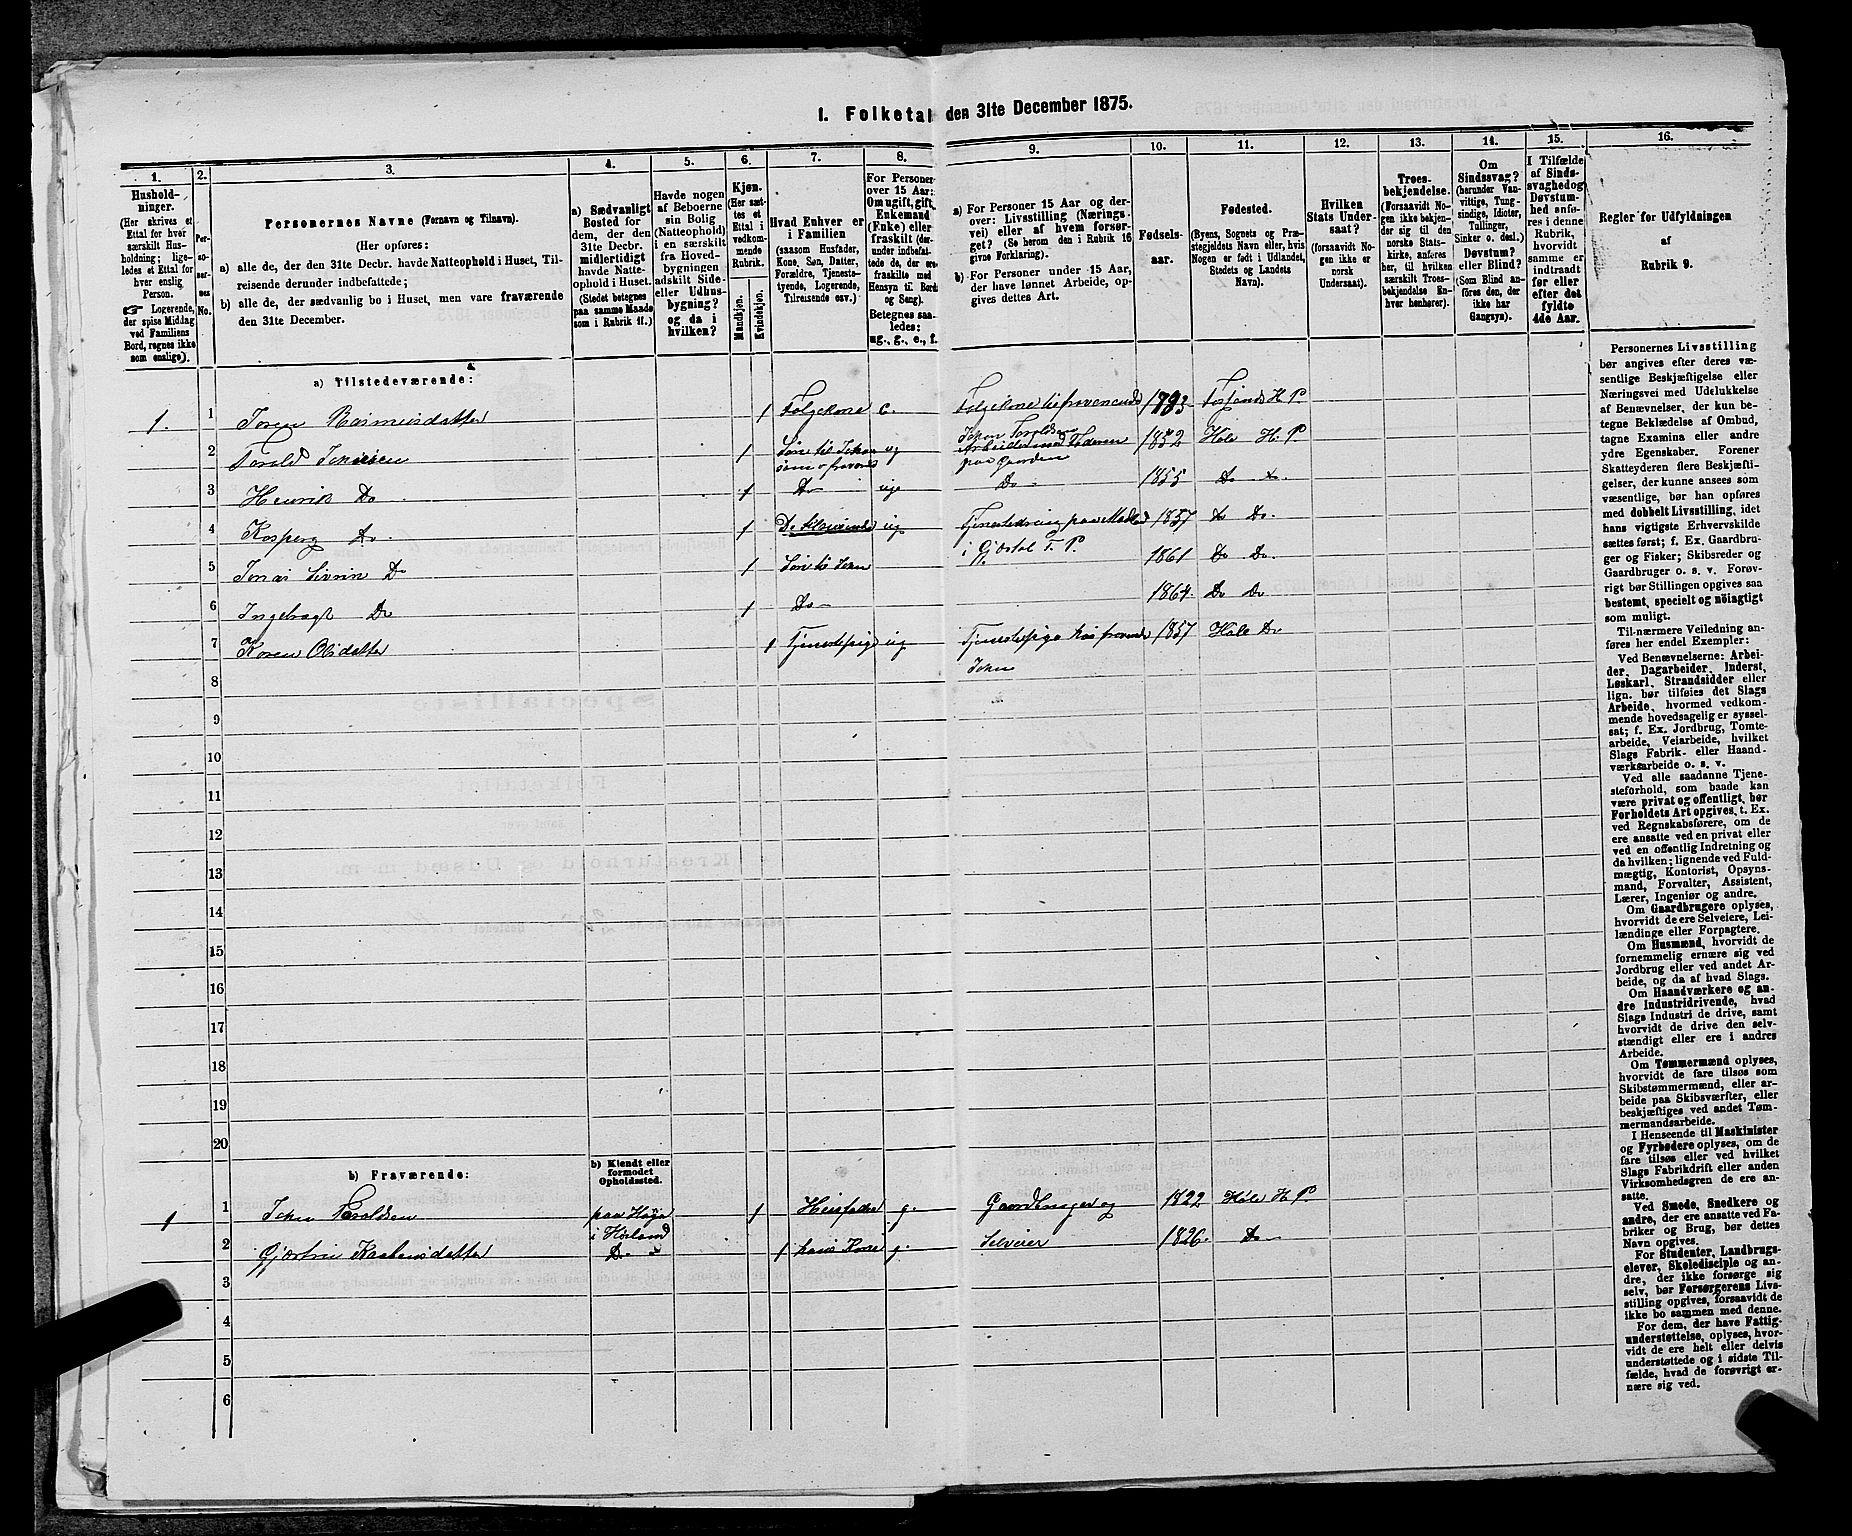 1. Folketal den 31te December 1875.
1.
2.
3.
4.
5.
6.
7.
8.
9.
10.
11.
12.
13.
14.
15.
16.
Hushold-
ninger.
(Her skrives et
Ettal for hver
særskilt Hus-
holdning; lige-
ledes et Ettal for
hver enslig
Person.
☞ Logerende,
der spise Middag
ved Familiens
Bord, regnes ikke
som enslige).
Per-
so-
ner-
nes
No.
Personernes Navne (Fornavn og Tilnavn).
(Her opføres:
a) alle de, der den 31te Decbr. havde Natteophold i Huset, Til-
reisende derunder indbefattede;
b) alle de, der sædvanlig bo i Huset, men vare fraværende
den 31te December.
a) Sædvanligt
Bosted for
dem, der den
31te Decbr.
midlertidigt
havde Natte-
ophold i Huset.
(Stedet betegnes
paa samme Maade
som i Rubrik 11.)
Havde nogen
af Beboerne
sin Bolig
(Natteophold)
i en særskilt
fra Hoved-
bygningen
adskilt Side-
eller Udhus-
bygning?
og da i
hvilken?
Kjøn.
(Her sæt-
tes et
Ettal i
vedkom-
mende
Rubrik.
Mandkjøn.
Kvindekjøn.
Hvad Enhver er
i Familien
(saasom Husfader,
Kone, Søn, Datter,
Forældre, Tjeneste-
tyende, Logerende,
Tilreisende osv.)
For Personer
over 15 Aar:
Om ugift, gift,
Enkemand
(Enke) eller
fraskilt (der-
under indbefat-
tede de, der ere
fraskilte med
Hensyn til Bord
og Seng).
Betegnes saa-
ledes:
ug., g., e., f.
a) For Personer 15 Aar og der-
over: Livsstilling (Nærings-
vei) eller af hvem forsør-
get? (Se herom den i Rubrik 16
givne Forklaring).
b) For Personer under 15 Aar,
der have lønnet Arbeide, op-
gives dettes Art.
Fødsels-
aar.
Fødested.
(Byens, Sognets og Præ-
stegjeldets Navn eller, hvis
Nogen er født i Udlandet,
Stedets og Landets
Navn).
Hvilken
Stats Under-
saat?
(forsaavidt No-
gen ikke er
norsk
Undersaat).
Troes-
bekjendelse.
(Forsaavidt No-
gen ikke bekjen-
der sig til den
norske Stats-
kirke, anføres
her, til hvilken
særskilt Troes-
bekjendelse En-
hver henhører).
Om
Sindssvag?
(herunder Van-
vittige, Tung-
sindige, Idioter,
Tullinger,
Sinker o. desl.)
Døvstum?
eller Blind?
(Som Blind an-
føres den, der
ikke har
Gangsyn).
I Tilfælde
af Sinds-
svaghed og
Døvstum-
hed anfø-
res i denne
Rubrik,
hvorvidt
samme er
indtraadt
før eller
efter det
fyldte
4de Aar.
Regler for Udfyldningen
af
Rubrik 9.
a) Tilstedeværende:
1. 1 Toren Rasmusdatter 1 Følgekone e. Følgekone til fraværende 1793 Fosland H P
2 Torold Johnsen 1 Søn til John ug John Toroldsen 1852 Hole H. P
som er fraværende Arbeider med Faderen
paa Gaarden
3 Henrik Do 1 Do ug Do 1855 Do Do
4 Kasper Do 1 Do ug Tjenestedreng paa 1857 Do Do
i Gjæstal T. P.
5 Jonas Sivrin Do 1 Søn til John 1861 Do Do
6 Ingebregt Do 1 Do 1864. Do Do
7 Karen Olsdatter 1 Tjenestepige ug Tjenestepige hos fraværende 1857 Hole Do
John
8
9
10
11
12
13
14
15
16
17
18
19
20
b) Fraværende:
b) Kjendt eller
formodet
Opholdssted.
1 1 John Toroldsen paa Høye 1 Huusfader g. Gaardbruger og 1822 Hole H P
i Hørland
2 Gjertrin Knudsdatter Do 1 hans Kone g. Selveier 1826. Do
3
4
5
6
Personernes Livsstilling
bør angives efter deres væ-
sentlige Beskjæftigelse eller
Næringsvei med Udelukkelse
af Benævnelser, der kun be-
tegne Beklædelse af Ombud,
tagne Examina eller andre
ydre Egenskaber. Forener
Skatteyderen flere Beskjæfti-
gelser, der kunne ansees som
væsentlige, bør han opføres
med dobbelt Livsstilling, idet
hans vigtigste Erhvervskilde
sættes først; f. Ex. Gaardbru-
ger og Fisker; Skibsreder og
Gaardbruger o. s. v. Forøv-
rigt bør Stillingen opgives saa
bestemt, specielt og nøiagtigt
som muligt.
Til nærmere Veiledning an-
føres her endel Exempler:
Ved Benævnelserne: Arbei-
der, Dagarbeider, Inderst,
Løskarl, Strandsidder eller
lign. bør tilføies det Slags
Arbeide, hvormed vedkom-
mende hovedsagelig er syssel-
sat; f. Ex. Jordbrug, Tomte-
arbeide, Veiarbeide, hvilket
Slags Fabrik- eller Haand-
værksarbeide o. s. v.
Ved alle saadanne Tjene-
steforhold, som baade kan
være privat og offentligt, bør
Forholdets Art opgives, t. Ex.
ved Regnskabsførere, om de
ere ansatte ved en privat eller
ved en offentlig Indretning og
da hvilken; lignende ved Fuld-
mægtig, Kontorist, Opsyns-
mand, Forvalter, Assistent,
Lærer, Ingeniør og andre.
Om Gaardbrugere oplyses,
hvorvidt de ere Selveiere, Lei-
lændinge eller Forpagtere.
Om Husmænd, hvorvidt de
fornemmelig ernære sig ved
Jordbrug eller ved andet Ar-
beide, og da af hvad Slags.
Om Haandværkere og an-
dre Industridrivende, hvad
Slags Industri de drive, samt
hvorvidt de drive den selv-
stændigt eller ere i andres
Arbeide.
Om Tømmermænd oplyses,
hvorvidt de fare tilsøs som
Skibstømmermænd, eller ar-
beide paa Skibsværfter, eller
beskjæftiges ved andet Tøm-
mermandsarbeide.
I Henseende til Maskinister
og Fyrbødere oplyses, om de
fare tilsøs eller ved hvilket
Slags Fabrikdrift eller anden
Virksomhedsgren de ere an-
satte.
Ved Smede, Snedkere og
andre, der ere ansatte ved Fa-
briker og Brug, bør dettes
Navn opgives.
For Studenter, Landbrugs-
elever, Skoledisciple og an-
dre, der ikke forsørge sig
selv, bør Forsørgerens Livs-
stilling opgives, forsaavidt de
ikke bo sammen med denne.
For dem, der have Fattig-
understøttelse, oplyses, hvor-
vidt de ere helt eller delvis
understøttede og i sidste Til-
fælde, hvad de forøvrigt er-
nære sig ved.